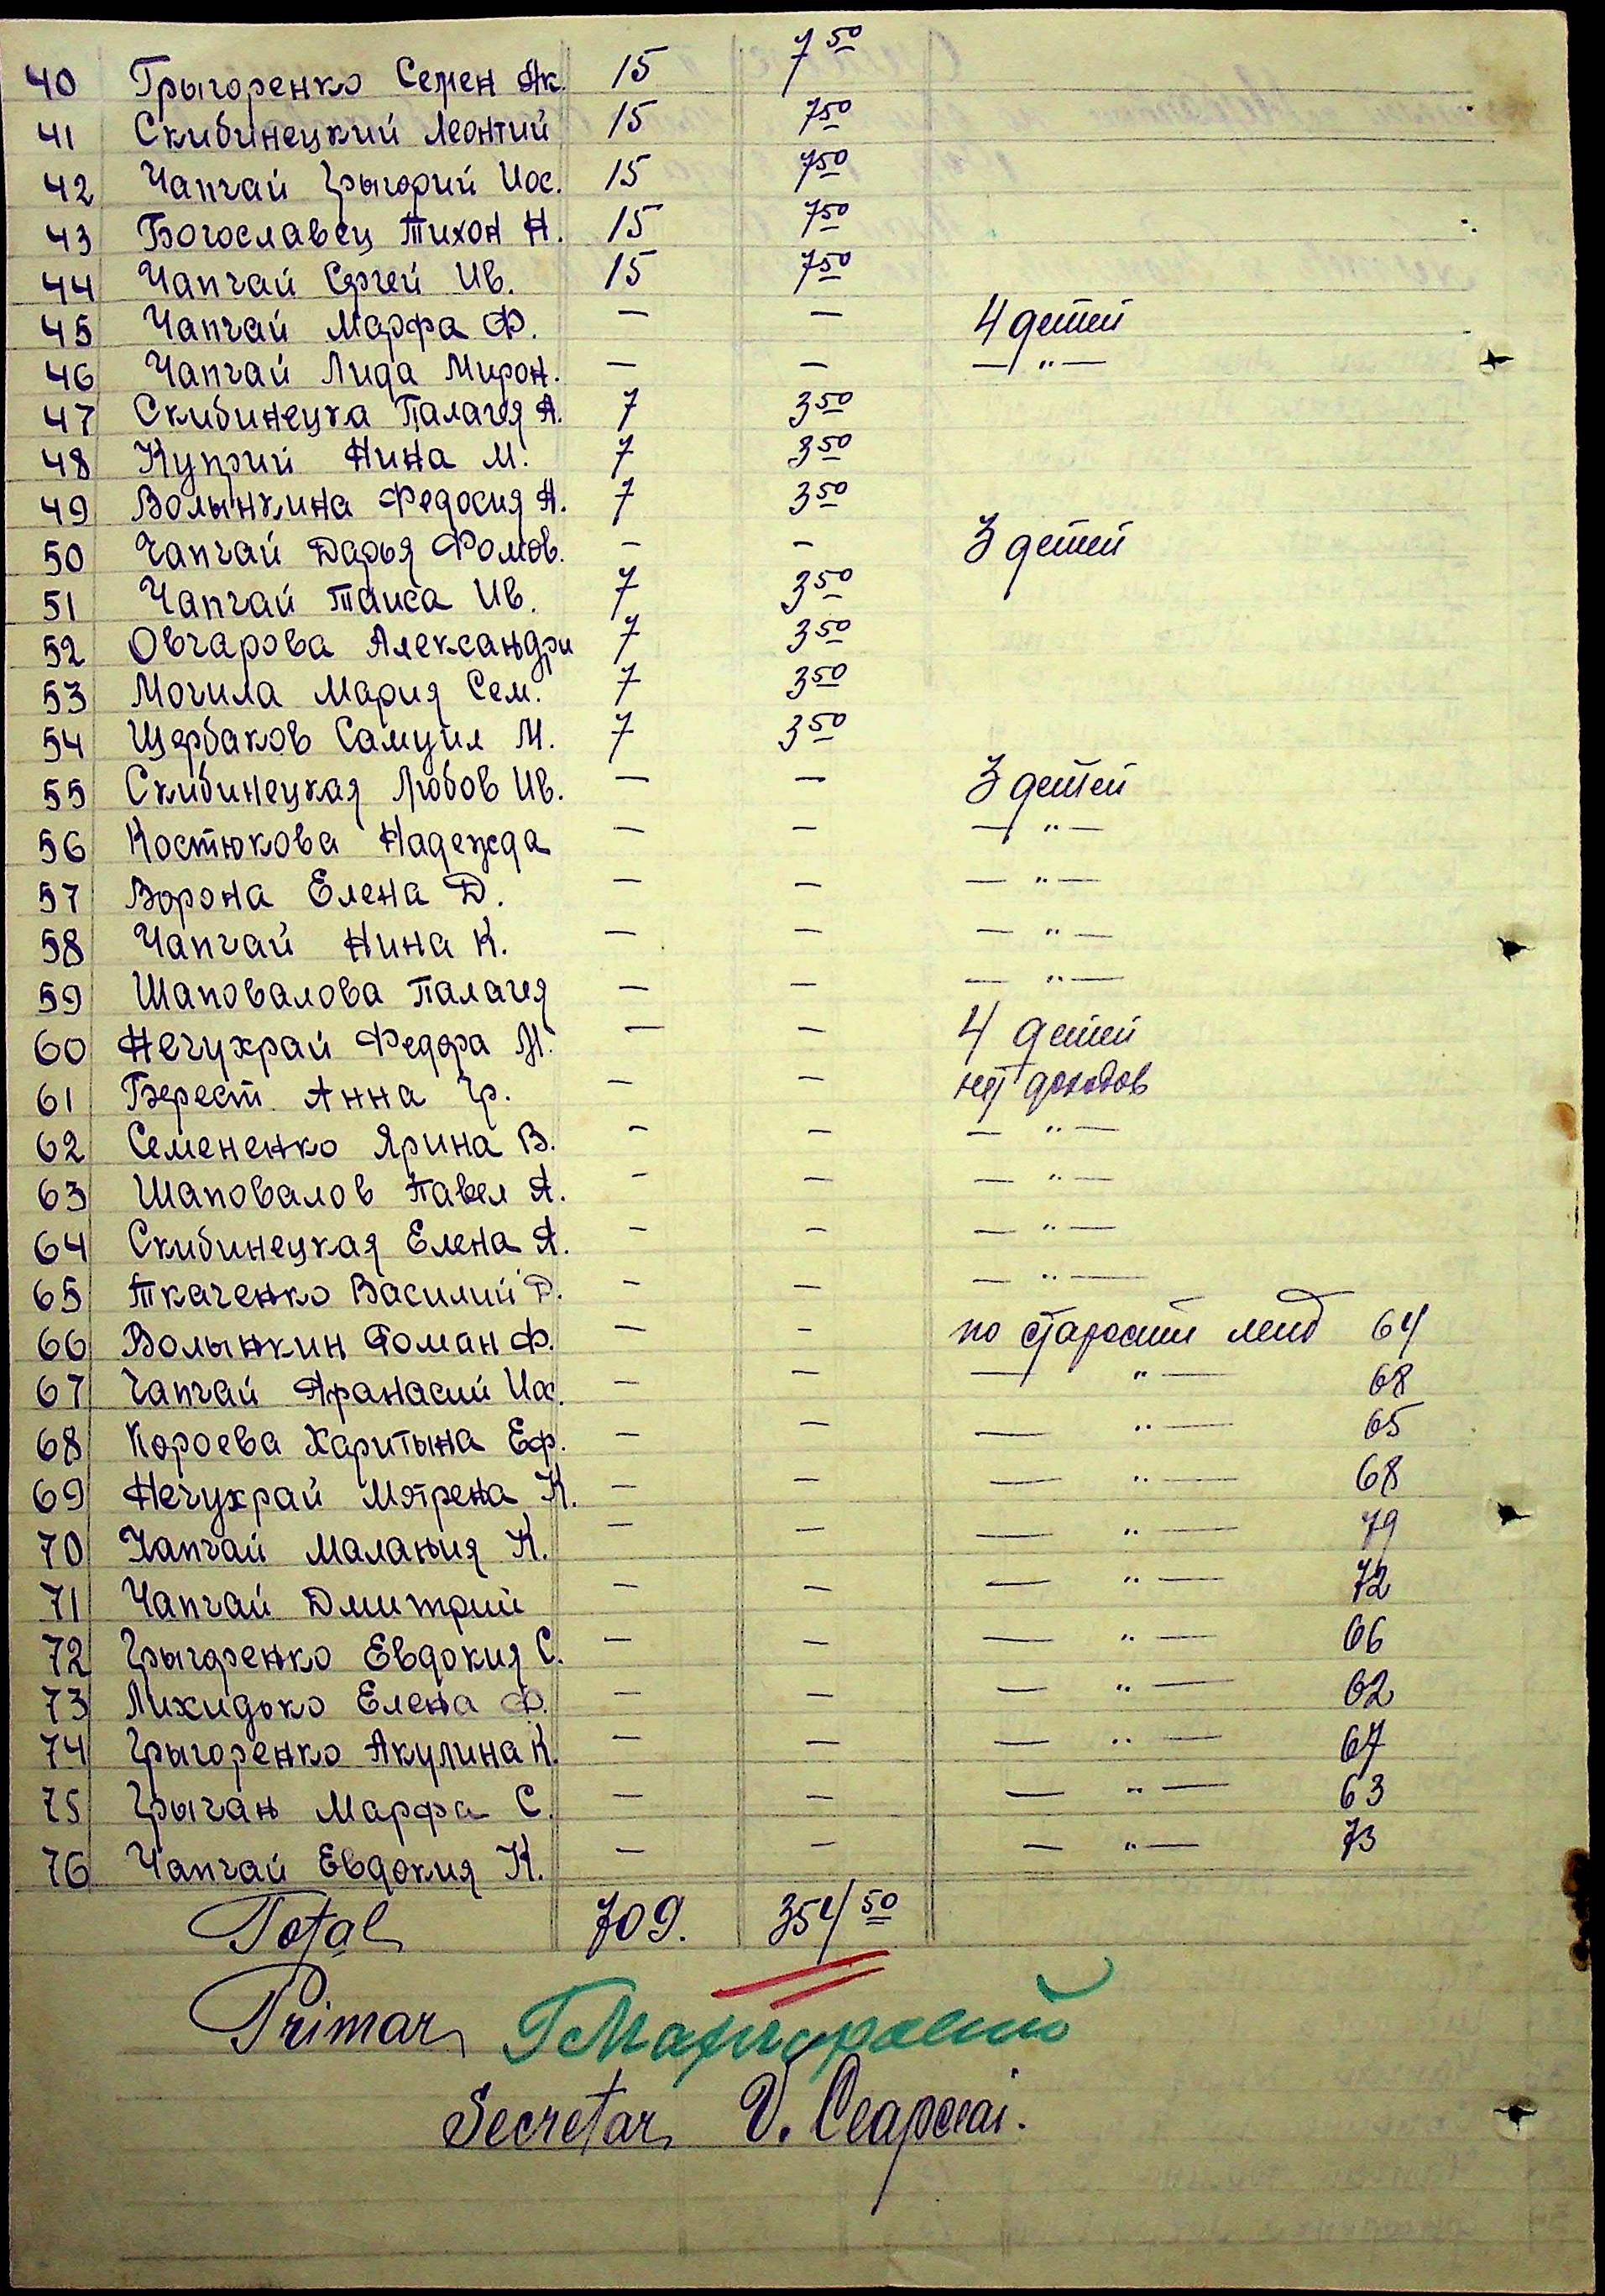 40 Грыгоренко Семен Як. 15 7 50
41 Скибинецкий Леонтий 15 7 50
42 Чапчай Грыгорий Иос. 15 7 50
43 Богославец Тихон Н. 15 7 50
44 Чапчай Сергей Ив. 15 7 50
45 Чапчай Марфа Ф. — — 4 детей
46 Чапчай Лида Мирон. — — — " —
47 Скибинецка Палагея А. 7 3 50
48 Куприй Нина М. 7 3 50
49 Волынкина Федосия А. 7 3 50
50 Чапчай Дарья Фомов. — — 3 детей
51 Чапчай Таиса Ив. 7 3 50
52 Овчарова Александри 7 3 50
53 Могила Мария Сем. 7 3 50
54 Щербаков Самуил М. 7 3 50
55 Скибинецкая Любов Ив. — — 3 детей
56 Костюкова Надежда — — — " —
57 Ворона Елена Д. — — — " —
58 Чапчай Нина К. — — — " —
59 Шаповалова Палагея — — — " —
60 Нечухрай Федора М. — — 4 детей
61 Берест Анна Гр. — — нет доходов
62 Семененко Ярина В. — — — " —
63 Шаповалов Павел А. — — — " —
64 Скибинецкая Елена А. — — — " —
65 Ткаченко Василий Д. — — — " —
66 Волынкин Роман Ф. — — по старости 64
67 Чапчай Афанасий Иос. — — — " — 68
68 Короева Харитына Еф. — — — " — 65
69 Нечухрай Мотрена К. — — — " — 68
70 Чапчай Малания К. — — — " — 79
71 Чапчай Дмитрий — — — " — 72
72 Грыгоренко Евдокия С. — — — " — 66
73 Лихидько Елена Ф. — — — " — 62
74 Грыгоренко Акулина К. — — — " — 67
75 Грыган Марфа С. — — — " — 63
76 Чапчай Евдокия К. — — — " — 73
Total 709. 354 50
Primar
Secretar V. Ceapceai.